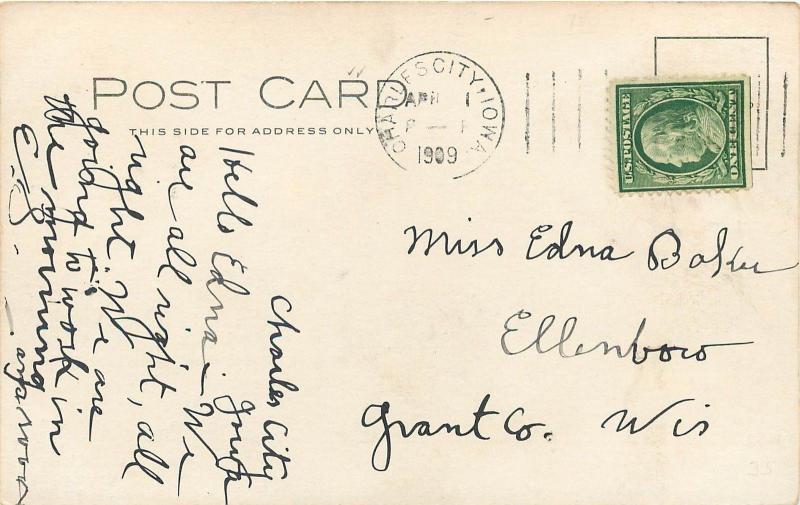 POST CARD
THIS SIDE FOR ADDRESS ONLY
CHARLES CITY, IOWA.
APR 1
P
1909
U.S. POSTAGE
ONE CENT
Miss Edna Baker
Ellenboro
Grant Co. Wis
Charles City
Iowa
Hello Edna. We
are all right, all
right. We are
going to work in
the morning